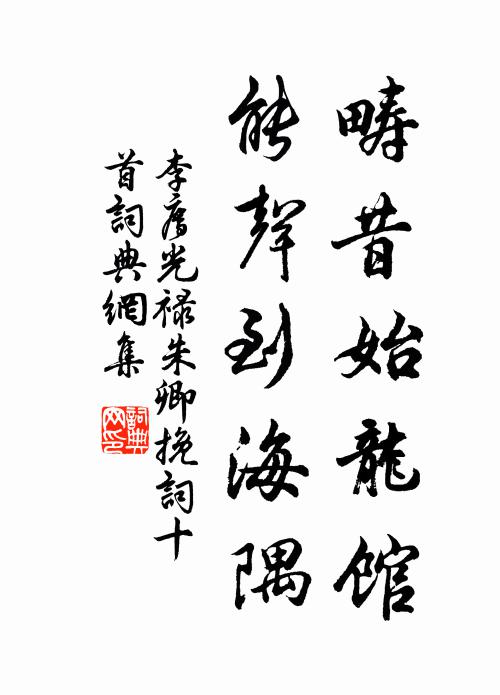 疇昔始龍館
能聲到海隅
李廌光祿朱卿挽詞十
首詞典網集
詞典
网印